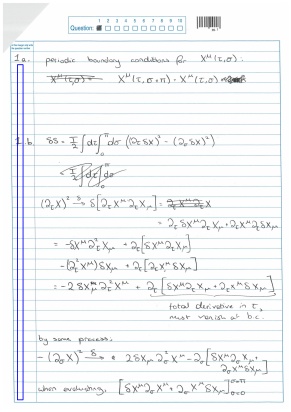 1 2 3 4 5 6 7 8 9 10
Question:
1a. periodic boundary conditions for X^μ(τ,σ):
X^μ(τ,σ+π) = X^μ(τ,σ)
1.b. δS = T/2 ∫dτ ∫_0^π dσ (∂_τ δX)² - (∂_σ δX)²
T/2 ∫dτ ∫_0^π dσ
(∂_τ X)² →^δ δ[∂_τ X^μ ∂_τ X_μ] =
= ∂_τ δX^μ ∂_τ X_μ + ∂_τ X^μ ∂_τ δX_μ
= -δX^μ ∂_τ² X_μ + ∂_τ [δX^μ ∂_τ X_μ]
-(∂_τ² X^μ) δX_μ + ∂_τ [∂_τ X^μ δX_μ]
= -2 δX_μ ∂_τ² X^μ + ∂_τ [δX^μ ∂_τ X_μ + ∂_τ X^μ δX_μ]
total derivative in τ,
must vanish at b.c.
by same process:
-(∂_σ X)² →^δ 2 δX_μ ∂_σ² X^μ - ∂_σ [δX^μ ∂_σ X_μ +
∂_σ X^μ δX_μ]
when evaluating, [δX^μ ∂_σ X_μ + ∂_σ X^μ δX_μ]_{σ=0}^{σ=π}